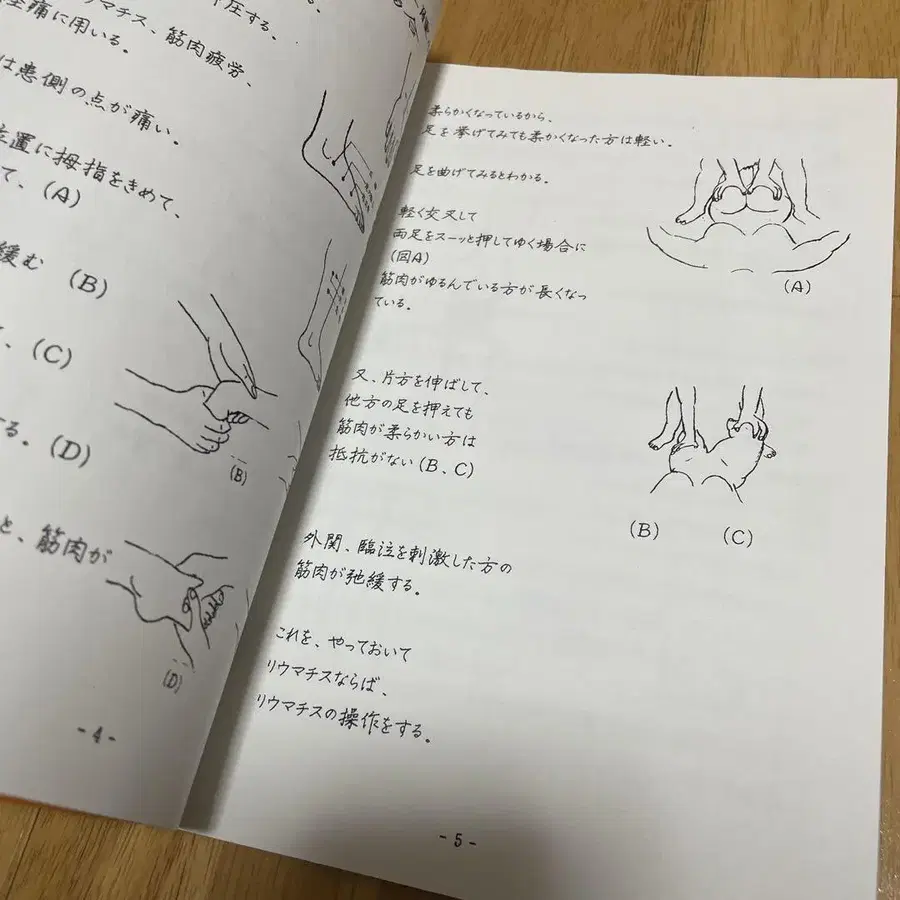 圧する。
リウマチス、筋肉疲労、
痛に用いる。
は患側の点が痛い。
位置に拇指をきめて、
て、(A)
緩む (B)
、(C)
する。(D)
と、筋肉が
(B)
(D)
-4-
柔らかくなっているから、
足を挙げてみても柔かくなった方は軽い。
足を曲げてみるとわかる。
軽く交叉して
両足をスーッと押してゆく場合に
(図A)
筋肉がゆるんでいる方が長くなっ
ている。
(A)
又、片方を伸ばして、
他方の足を押えても
筋肉が柔らかい方は
抵抗がない(B、C)
(B)
(C)
外関、臨泣を刺激した方の
筋肉が弛緩する。
これを、やっておいて
リウマチスならば、
リウマチスの操作をする。
-5-